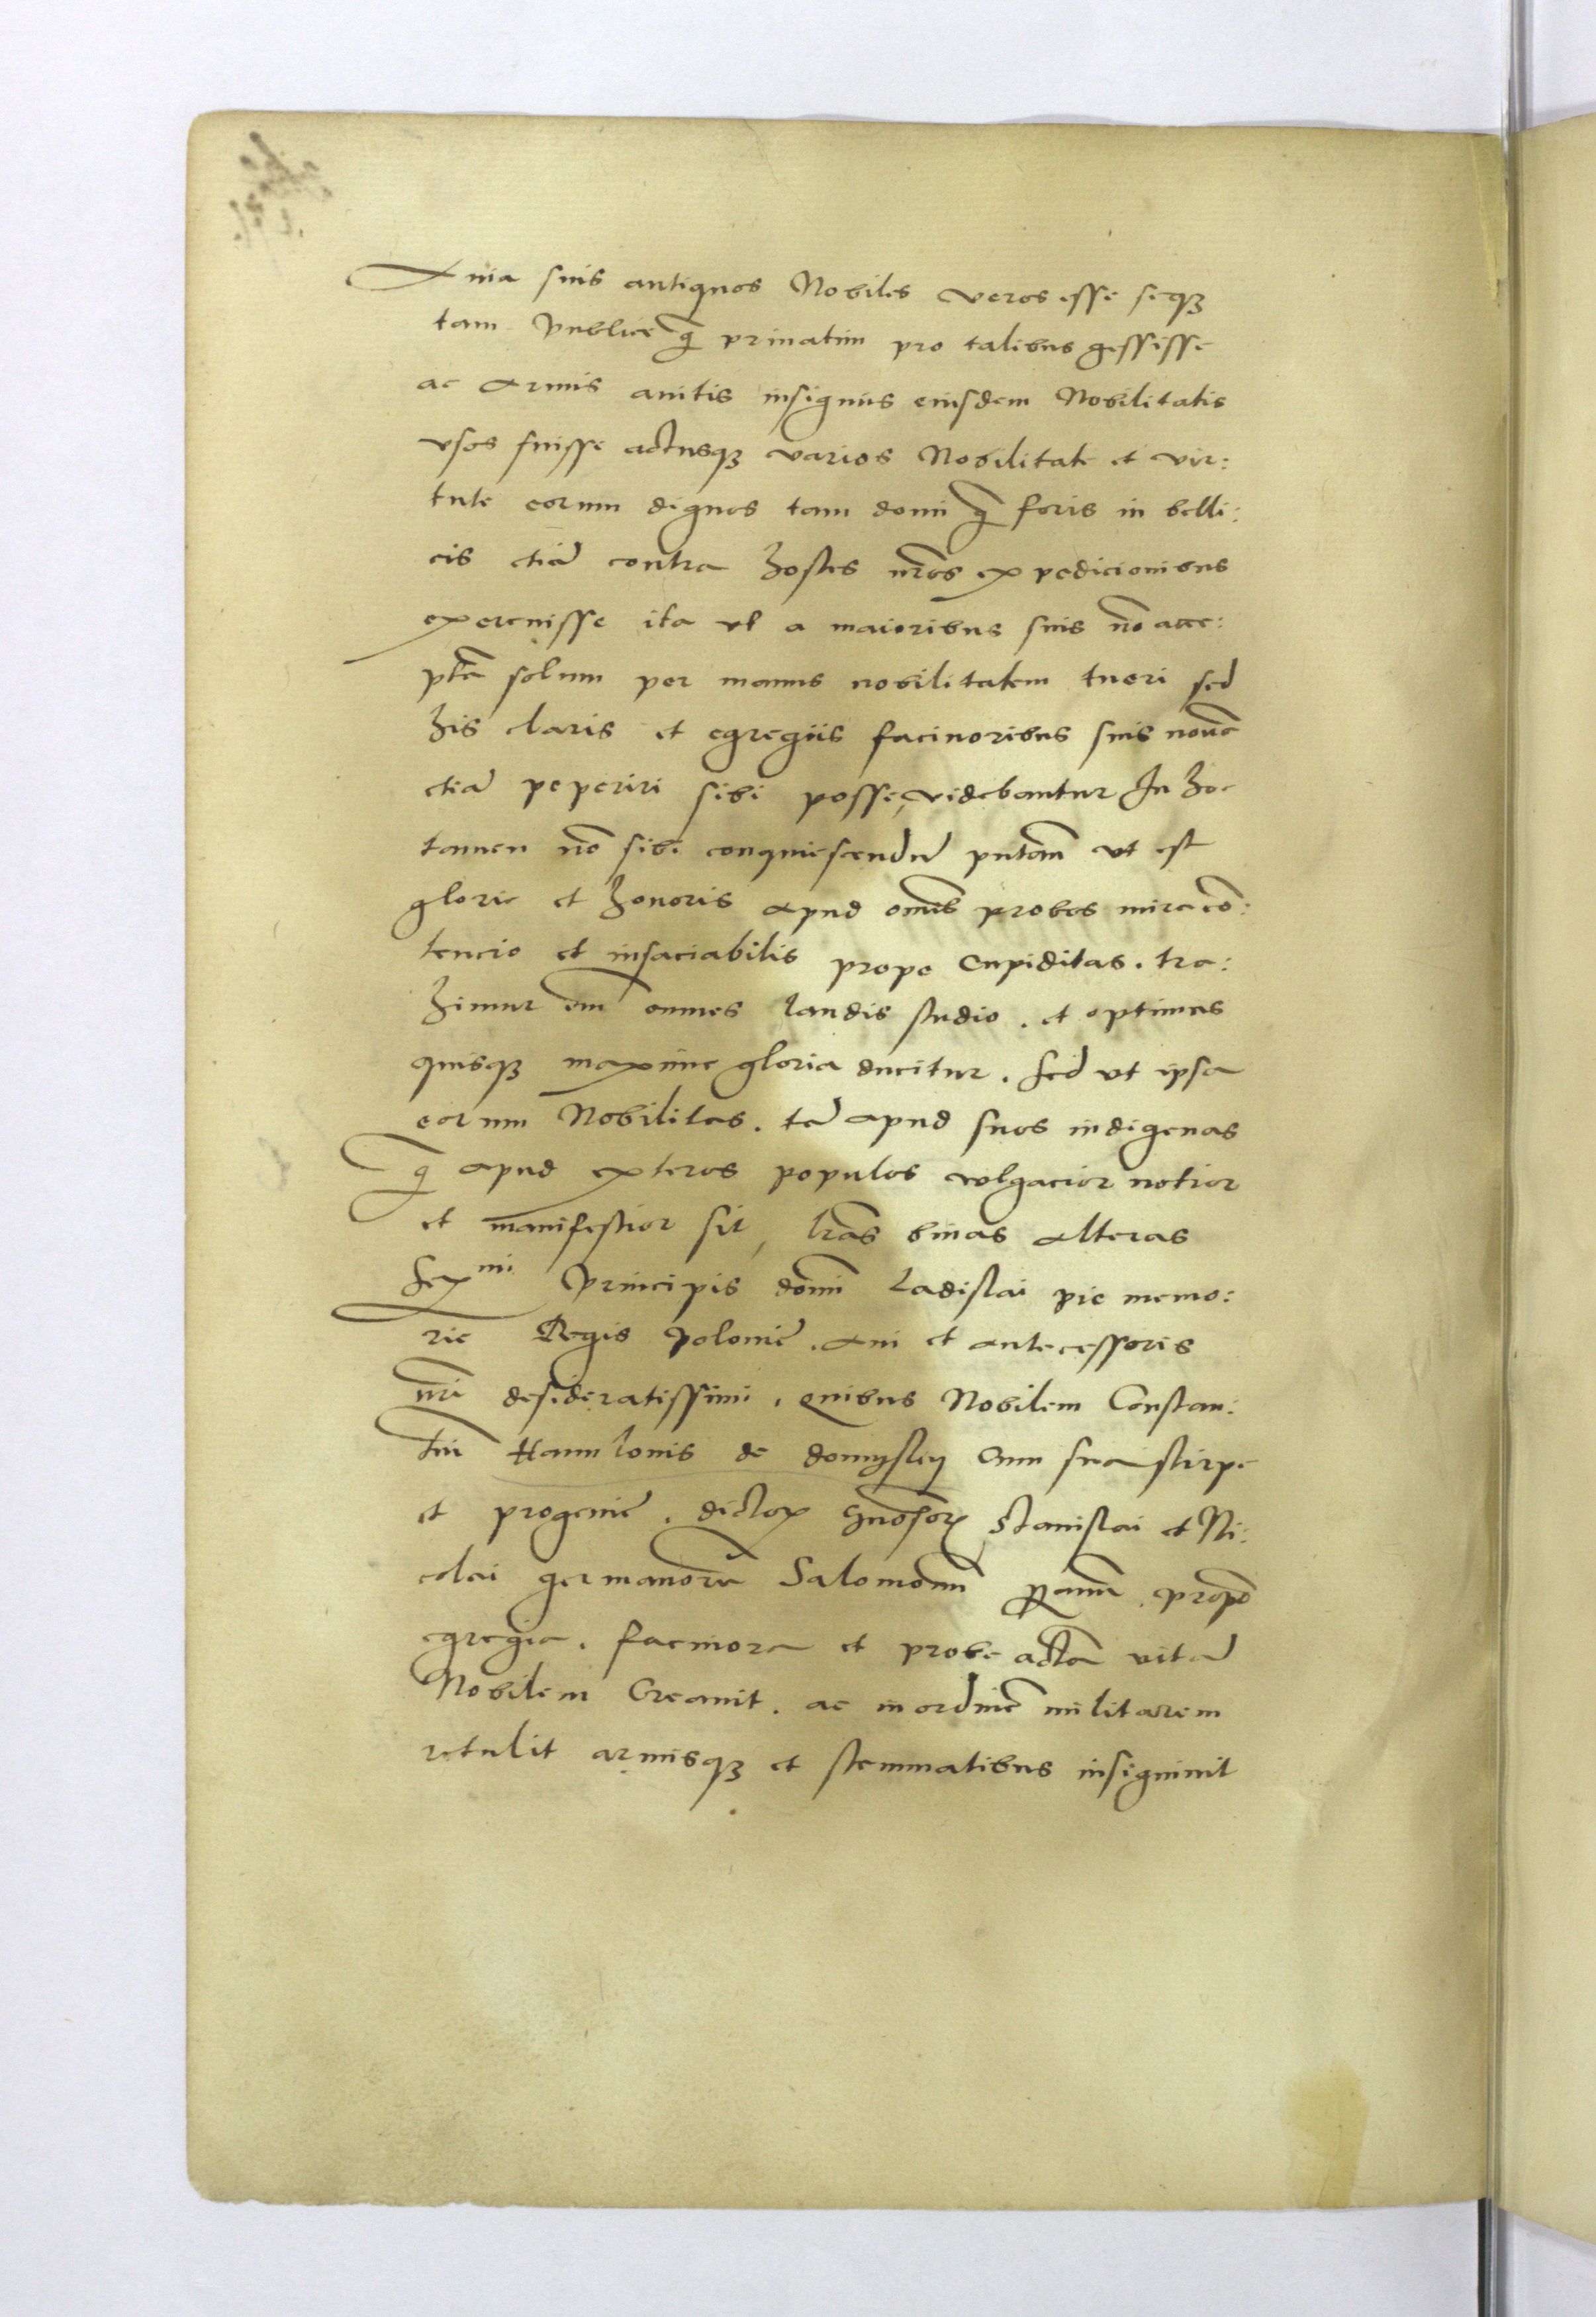 Auia suis antiquos Nobiles veros esse seqꝫ
tam Publice q̃ priuatim pro talibus gessisse
ac Armis auitis insigniis eiusdem Nobilitatis
vsos fuisse actusqꝫ varios Nobilitate et vir:
tute eorum dignos tam domi q̃ foris in belli:
cis etiã contra hostes nr̃os expedicionibus
exercuisse ita vt a maioribus suis nõ acce:
ptã solum per manus nobilitatem tueri sed
his claris et egregiis facinoribus suis nouã
etiã pepeiri sibi posse, videbantur In hoc
tamen nõ sibi conquiescendũ putarũt vt est
glorie et honoris apud om̃es probos mira cõ:
tencio et insaciabilis prope Cupiditas. tra:
himur em̃ omnes laudis studio. et optimus
quisqꝫ maxime gloria ducitur. Sed vt ipsa
eorum Nobilitas. tã apud suos indigenas
q̃ apud exteros populos vulgacior notior
et manifestior sit, lr̃as binas alteras
Serᵐⁱ Principis dom̃i Ladislai pie memo:
rie Regis Polonie. Aui et antecessoris
nr̃i desideratissimi, Quibus Nobilem Constan:
tin̄ de Cum sua stirpe
et progenie. dictoꝝ Gñosoꝝ Stanislai et Ni:
colai germanorũ Salomonũ propt̃
egregia. facinora et probe actã vitã
Nobilem Creauit. ac in ordinẽ militarem
retulit armisqꝫ et stemmatibus insigniuit